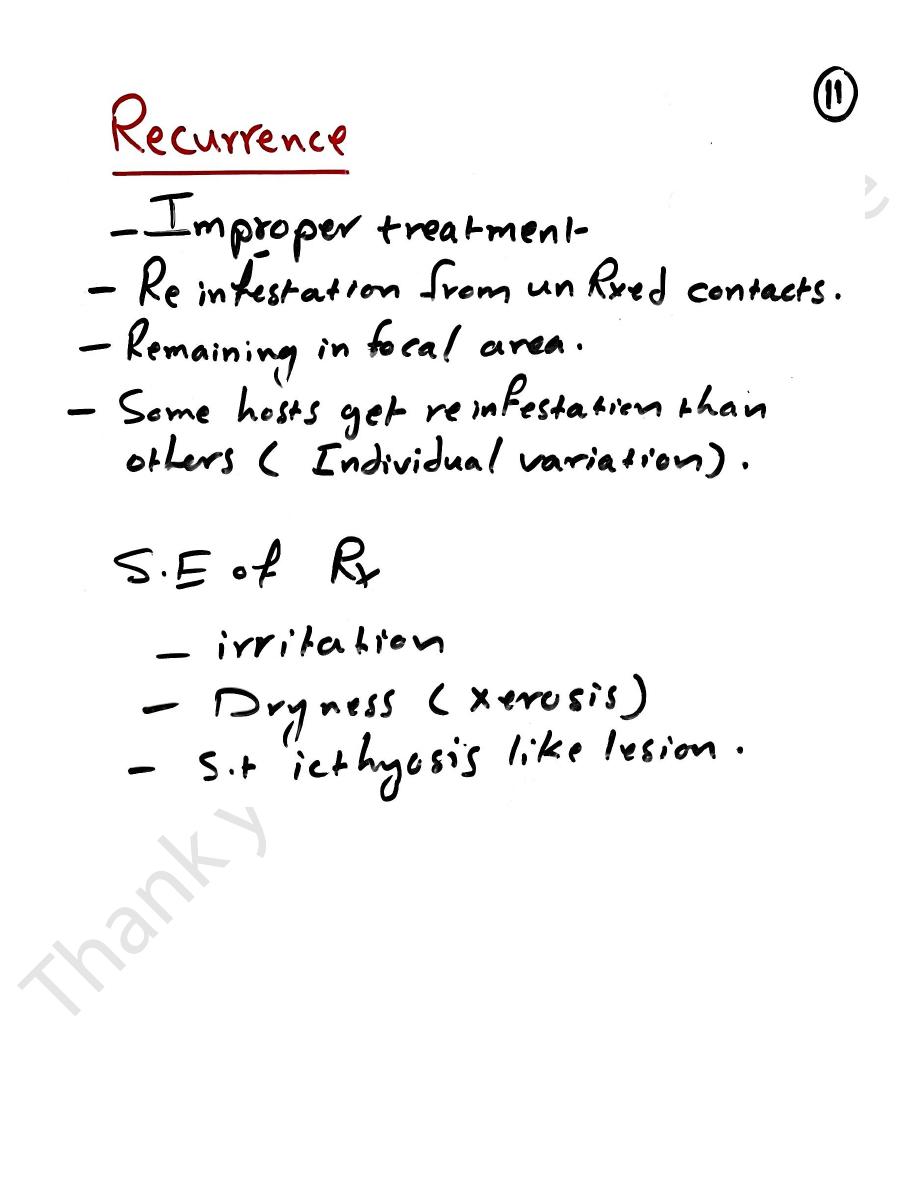 11
Recurrence
- Improper treatment
- Re infestation from un Rxed contacts.
- Remaining in focal area.
- Some hosts get reinfestation than
others ( Individual variation) .
S.E of Rx
- irritation
- Dryness ( xerosis)
- S.t icthyosis like lesion .
Thank y